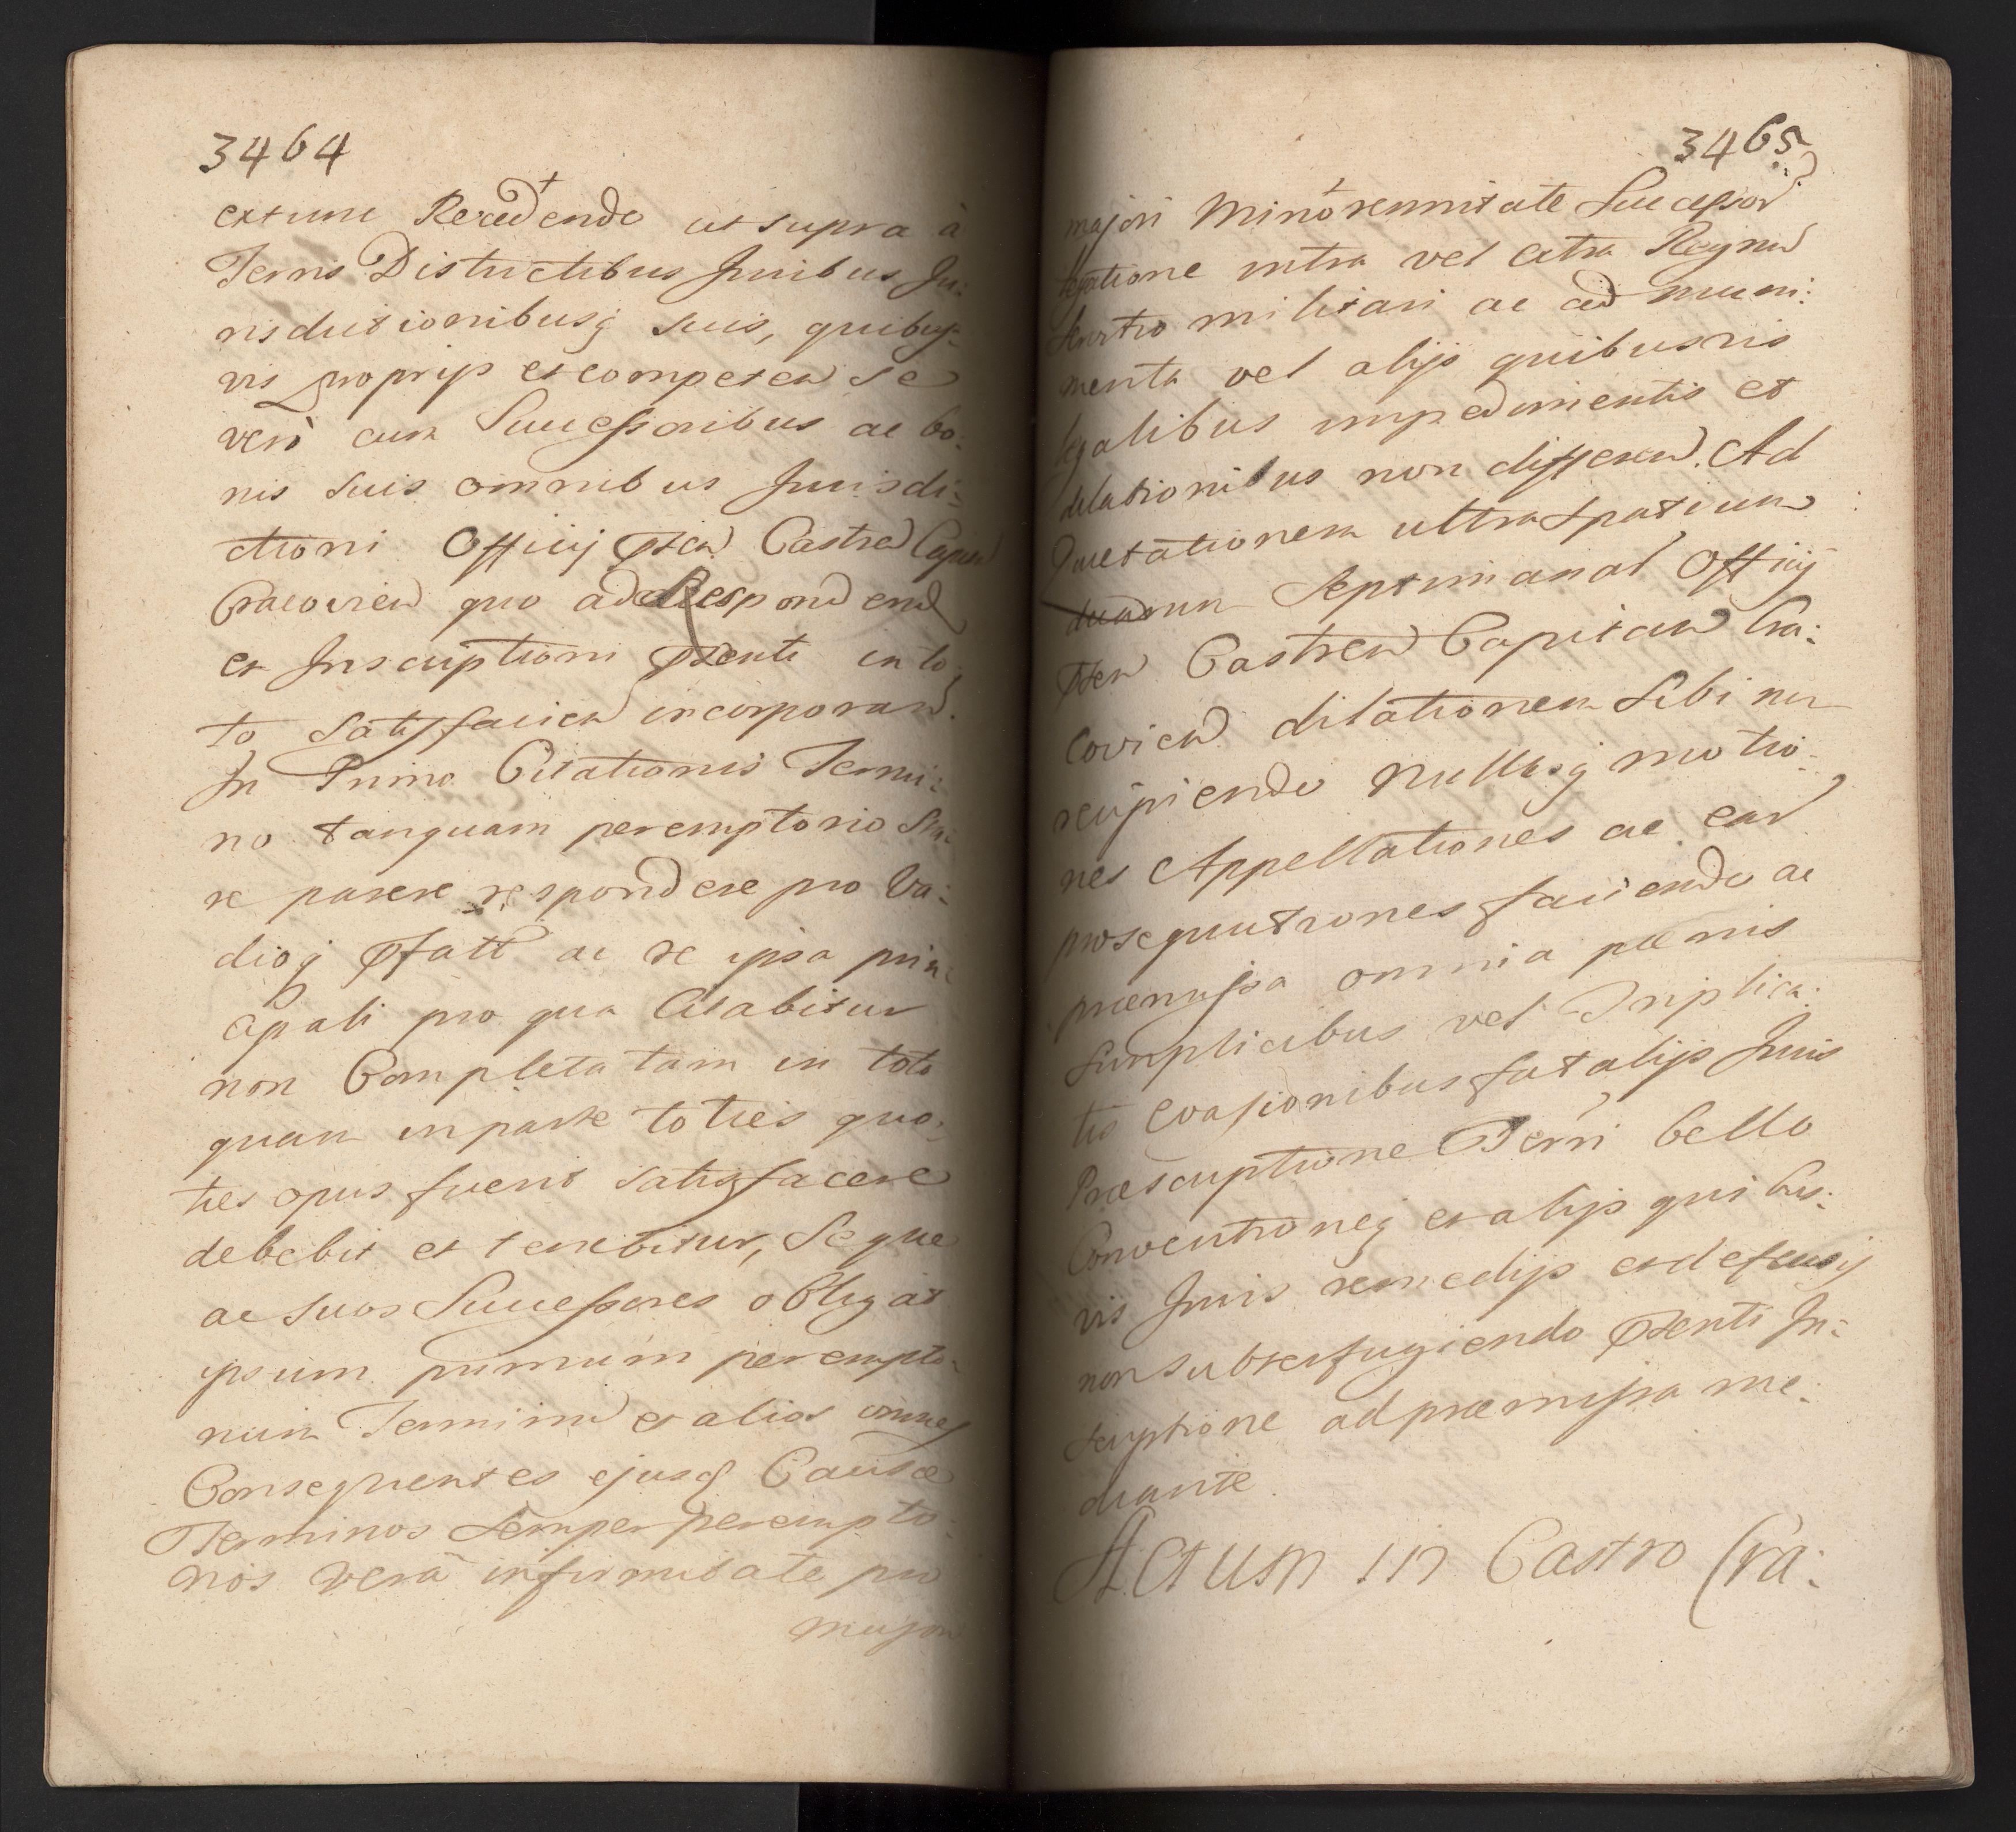 3464
extunc Recedendo ut supra à
Terris Districtibus Juribus Ju:
risdictionibusq suis, quibus-
vis proprijs et competen Se
verò cum Successoribus ac bo:
nis suis omnibus Jurisdi:
ctioni Officij pten Castren Capitan
Cracovien quo ad Respondend
et Inscriptioni pnti in to
to Satisfacien incorporan.
In Primo Citationis Termi:
no tanquam peremptorio Sta:
re parere respondere pro Va:
dioq pfatt ac re ipsa prin:
cipali pro qua Citabitur
non Completa tam in toto
quam in parte toties quo:
ties opus fuerit satisfacere
debebit et tenebitur, Seque
ac suos Successores obligat
ipsum primum perempto:
rium Terminu et alios omnes
Consequentes ejusd Causæ
Terminos semper perempto:
rios verâ infirmitate pro
majori
3465
majori Minorennitate Successor
legatione intra vel extra Regnu
Servitio militari ac ad muni:
menta vel alijs quibusvis
legalibus impedimentis et
dilationibus non differen. Ad
Quietationem ultra Spatium
duarum Septimanar Officij
pten Castren Capitan Cra:
covien dilationem Sibi non
recipiendo Nullasq motio:
nes Appellationes ac ear
prosequutiones faciendo ac
præmissa omnia pœnis
Simplicibus vel Triplica:
tis Evasionibus fatalijs Juris
Præscriptione Terri bello
Conventioneq et alijs quibus:
vis Juris remedijs et defensis
non subterfugiendo pnti In:
scriptione ad præmissa me:
diante.
Actum in Castro Cra: